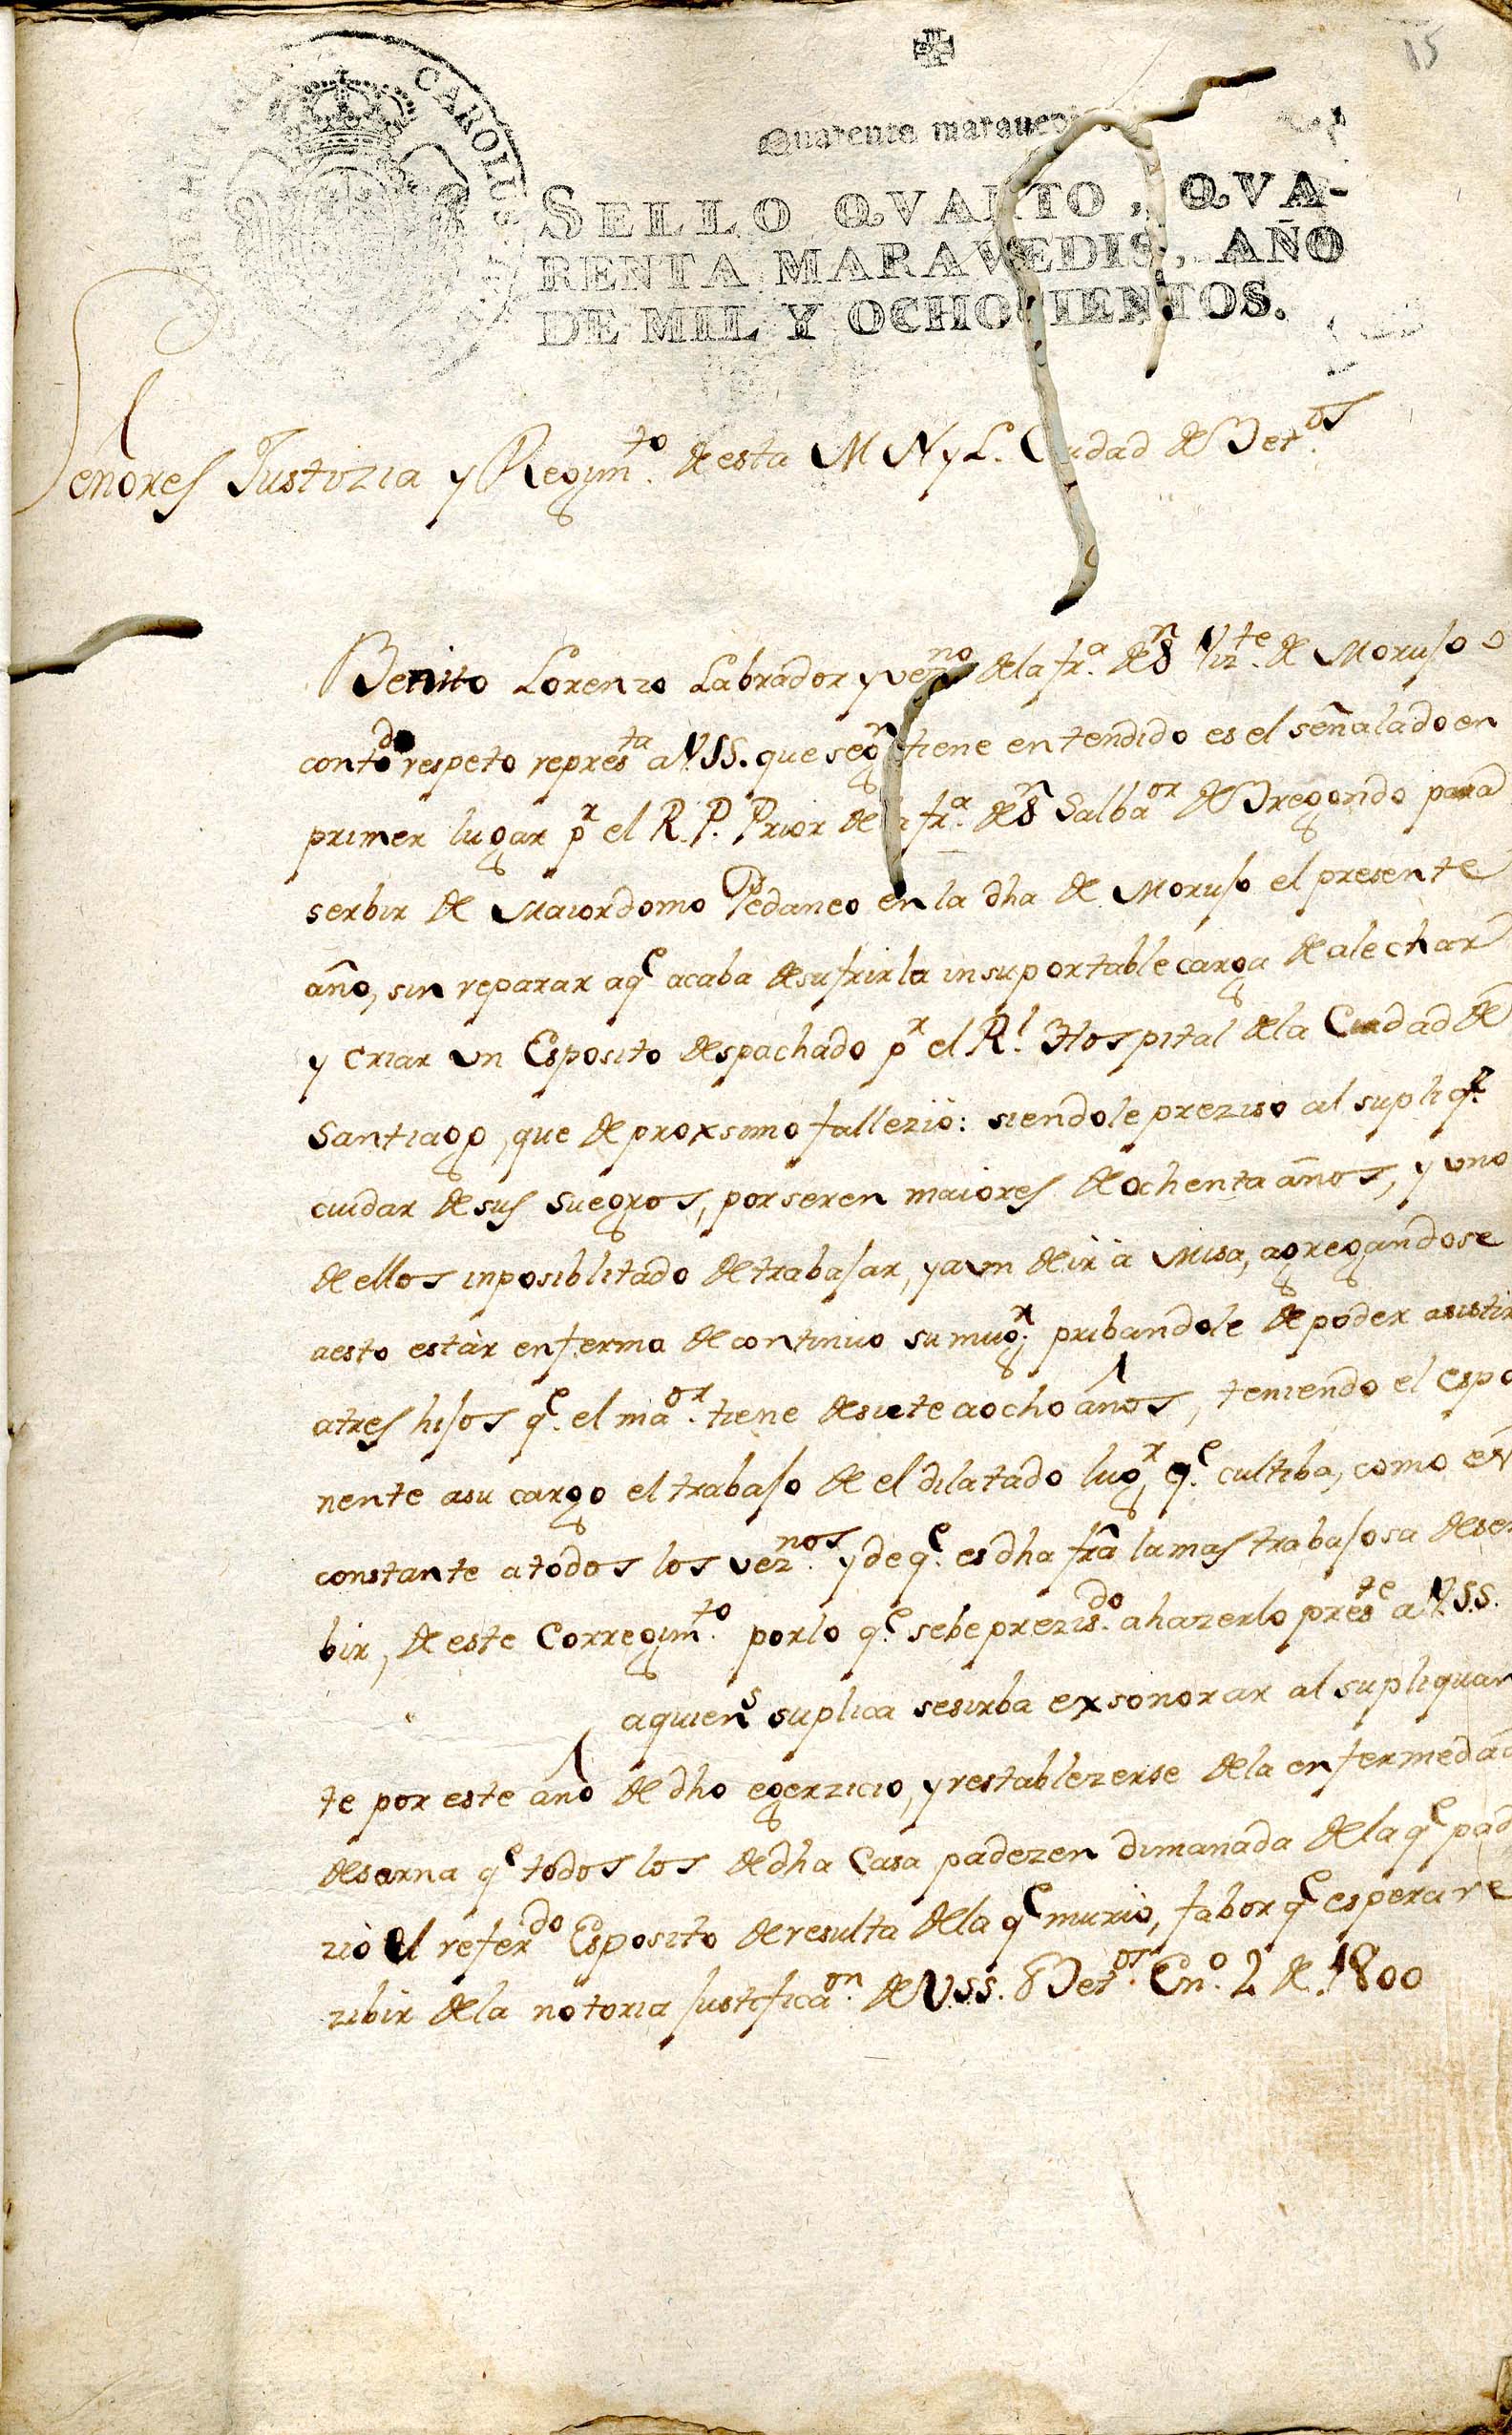 15
Quarenta maraued
CAROLUS
SELLO QVARTO, QVA-
RENTA MARAVEDIS, AÑO
DE MIL Y OCHOCIENTOS.
Señores Justizia y Regimto. de esta M N y L. Ciudad de Betos.
Benito Lorenzo Labrador y vezno de la fra. de Sn Vizte. de Moruso
con todo respeto represta a VSS. que segn tiene entendido es el señalado en
primer lugar pr el R. P. Prior de la fra. de Sn Salbaor de Bregondo para
serbir de Maiordomo Pedaneo en la dha de Moruso el presente
año, sin reparar a qe acaba de sufrir la insuportable carga de alechar
y criar un Esposito despachado pr el Rl. Hospital de la Ciudad de
Santiago, que de proxsimo fallezió: siendole preziso al supliqte
cuidar de sus suegros, por seren maiores de ochenta años, y uno
de ellos inposiblitado de trabajar, y aun de ir à Misa, agregandose
a esto estàr enferma de continuo su mugr, pribandole de poder asistir
a tres hijos qe. el maor. tiene de siete a ocho años, teniendo el espo
nente a su cargo el trabajo de el dilatado lugr, qe. cultiba, como es
constante a todos los veznos. y de qe. es dha fra la mas trabajosa de ser
bir, de este Corregimto. por lo qe. se be prezisdo. a hazerlo preste a V.S.S.
a quiens suplica se sirba exsonorar al supliquan
te por este año de dho egerzicio, y restablezerse de la enfermedad
de sarna qe todos los de dha Casa padezen dimanada de la qe pade
ziò el referdo Esposito de resulta de la qe muriò, fabor qe espera re
zibir de la notoria justificaon. de V.S.S. Betos. Eno. 2 de 1800